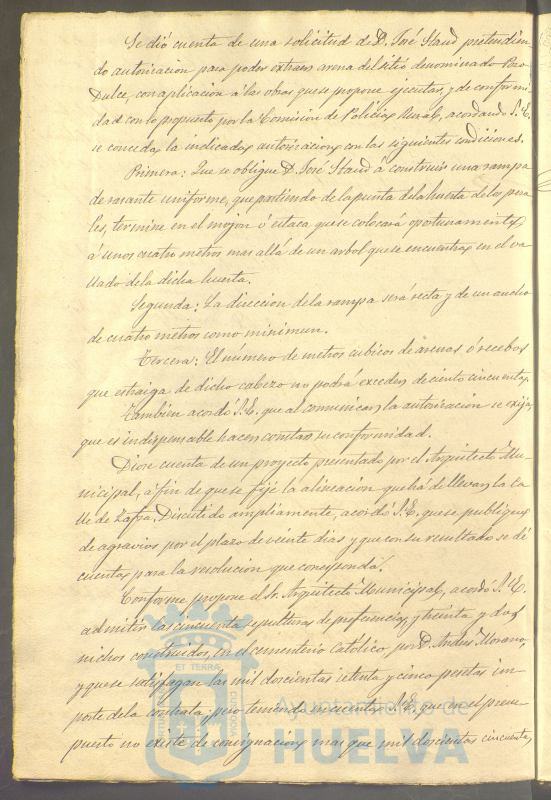 Se dió cuenta de una solicitud de D. José Staud pretendien
do autorizacion para poder extraer arena del sitio denominado Pozo
Dulce, con aplicacion á las obras que se propone ejecutar, y de conformi
dad con lo propuesto por la Comision de Policia Rural, acordando S. E.
se conceda la indicada autorizacion con las siguientes condiciones.
Primera: Que se obligue D. José Staud á construir una rampa
de rasante uniforme, que partiendo de la punta de la huerta de los pera
les, termine en el mojon ó estaca que se colocará oportunamente,
á unos cuatro metros mas allá de un arbol que se encuentra en el va
llado de la dicha huerta.
Segunda: La direccion de la rampa será recta y de un ancho
de cuatro metros como minimun.
Tercera: El número de metros cubicos de arenas ó recebos
que estraiga de dicho cabezo no podrá exceder de ciento cincuenta.
Tambien acordó S. E. que al comunicar la autorizacion se exija
que es indispensable hacer constar su conformidad.
Diose cuenta de un proyecto presentado por el Arquitecto Mu
nicipal, á fin de que se fije la alineacion que há de llevar la ca
lle de Zafra, Discutido ampliamente, acordó S. E. que se publique
de agravios por el plazo de veinte dias y que con su resultado se dé
cuenta para la resolucion que corresponda.
Conforme propone el Sr. Arquitecto Municipal, acordó S. E.
admitir las cincuenta sepulturas de preferencia, y treinta y dos
nichos construidos en el cementerio Católico, por D. Andres Morano,
y que se satisfagan las mil doscientas setenta y cinco pesetas im
porte de la contrata; pero teniendo en cuenta S. E. que en el presu
puesto no existe de consignacion mas que mil doscientas cincuenta,
ET TERRA
Ayuntamiento de
HUELVA